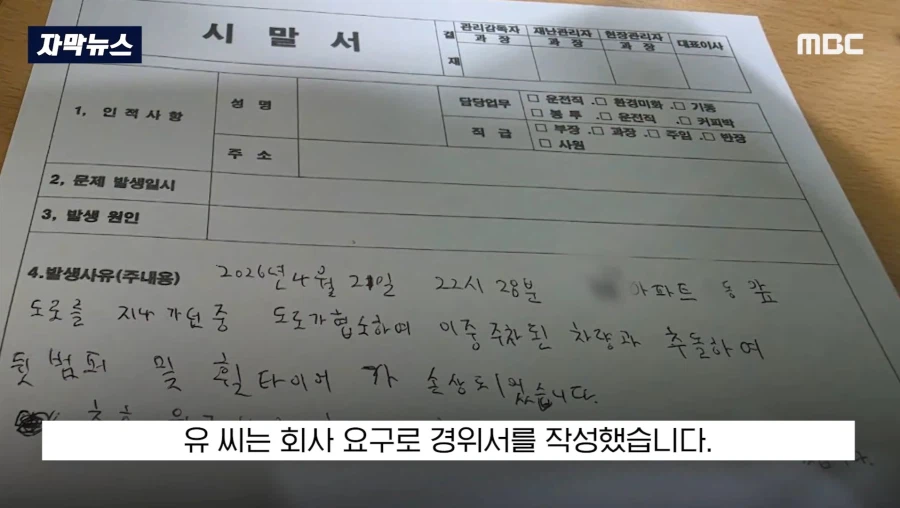 자막뉴스
MBC
시 말 서
결 재
관리감독자 재난관리자 현장관리자 대표이사
과 장 과 장 과 장
1, 인 적 사 항
성 명
담당업무
□ 운전직 .□ 환경미화 .□ 기동
□ 봉 투 .□ 운전직 .□ 커피박
주 소
직 급
□ 부장 .□ 과장 .□ 주임 .□ 반장
□ 사원
2, 문제 발생일시
3, 발생 원인
4.발생사유(주내용) 2026년 4월 21일 22시 28분 아파트 동 앞
도로를 지나 가던 중 도로가 협소하여 이중주차된 차량과 추돌하여
뒷범퍼 및 휠타이어가 손상되었습니다.
유 씨는 회사 요구로 경위서를 작성했습니다.